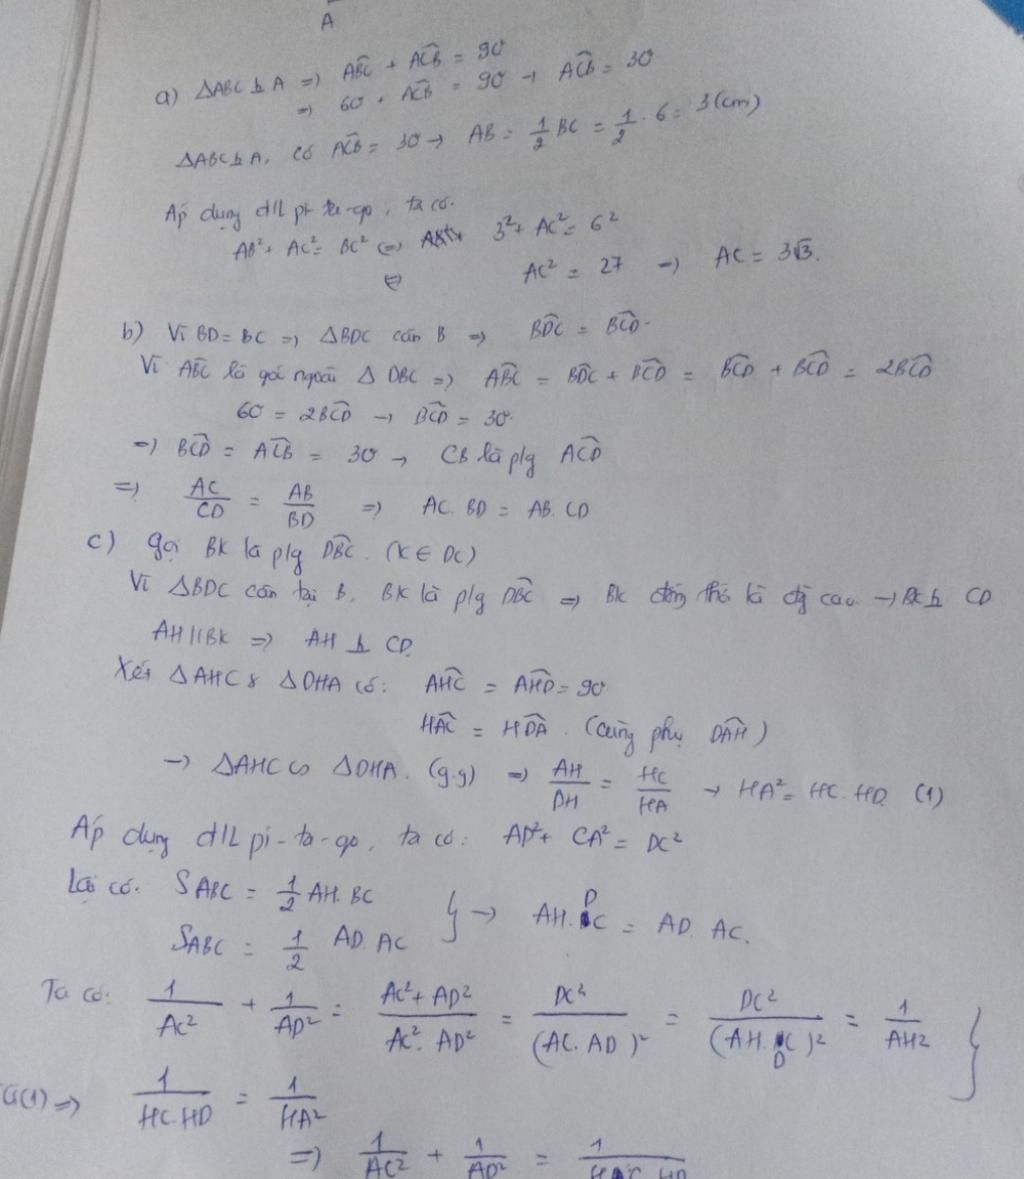 A
a) ΔABC ⊥ A => ABC + ACB = 90
=> 60 + ACB = 90 → ACB = 30
ΔABC ⊥ A, có ACB = 30 → AB = 1/2 BC = 1/2 . 6 = 3 (cm)
Áp dụng đ/L pi-ta-go, ta có.
AB² + AC² = BC² <=> 3² + AC² = 6²
AC² = 27 => AC = 3√3.
b) Vì BD = BC => ΔBDC cân B => BDC = BCD.
Vì ABC là góc ngoài Δ DBC => ABC = BDC + BCD = BCD + BCD = 2BCD
60 = 2BCD → BCD = 30.
=> BCD = ACB = 30 → CB là p/g ACD
=> AC/CD = AB/BD => AC. BD = AB. CD
c) Gọi BK là p/g DBC. (K ∈ DC)
Vì ΔBDC cân tại B, BK là p/g DBC => BK đồng thời là đg cao → BK ⊥ CD
AH//BK => AH ⊥ CD.
Xét ΔAHC & ΔDHA có: AHC = AHD = 90
HAC = HDA. (cùng phụ DAH)
→ ΔAHC ∽ ΔDHA. (g.g) => AH/DH = HC/HA → HA² = HC. HD. (1)
Áp dụng đ/L pi-ta-go, ta có: AD² + CA² = DC²
Lại có. SABC = 1/2 AH. BC
SABC = 1/2 AD. AC } → AH. DC = AD. AC.
Ta có: 1/AC² + 1/AD² = AC² + AD²/AC². AD² = DC²/(AC. AD)² = DC²/(AH. DC)² = 1/AH² }
(1) => 1/HC.HD = 1/HA²
=> 1/AC² + 1/AD² = 1/HC. HD